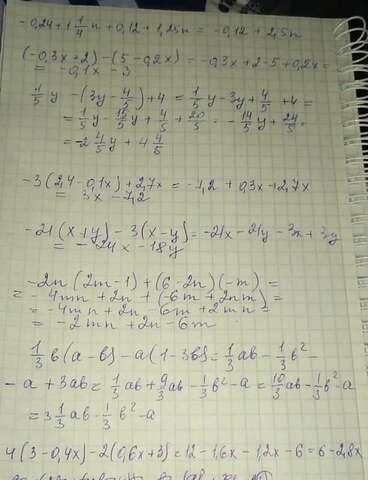 -0,24+1 1/4 n + 0,12 + 1,25n = -0,12 + 2,5n
(-0,3x+2) - (5-0,2x) = -0,3x+2-5+0,2x =
= -0,1x - 3
1/5 y - (3y - 4/5) + 4 = 1/5 y - 3y + 4/5 + 4 =
= 1/5 y - 15/5 y + 4/5 + 20/5 = -14/5 y + 24/5 =
= -2 4/5 y + 4 4/5
-3(2,4-0,1x)+2,7x = -7,2 + 0,3x+2,7x
= 3x - 7,2
-21(x+y) - 3(x-y) = -21x - 21y - 3x + 3y
= -24x - 18y
-2n(2m-1) + (6-2n)(-m) =
= -4mn + 2n + (-6m + 2nm) =
= -4mn + 2n - 6m + 2mn =
= -2mn + 2n - 6m
1/3 b(a-b) - a(1-3b) = 1/3 ab - 1/3 b² -
- a + 3ab = 1/3 ab + 9/3 ab - 1/3 b² - a = 10/3 ab - 1/3 b² - a
= 3 1/3 ab - 1/3 b² - a
4(3-0,4x)-2(0,6x+3) = 12-1,6x-1,2x-6=6-2,8x